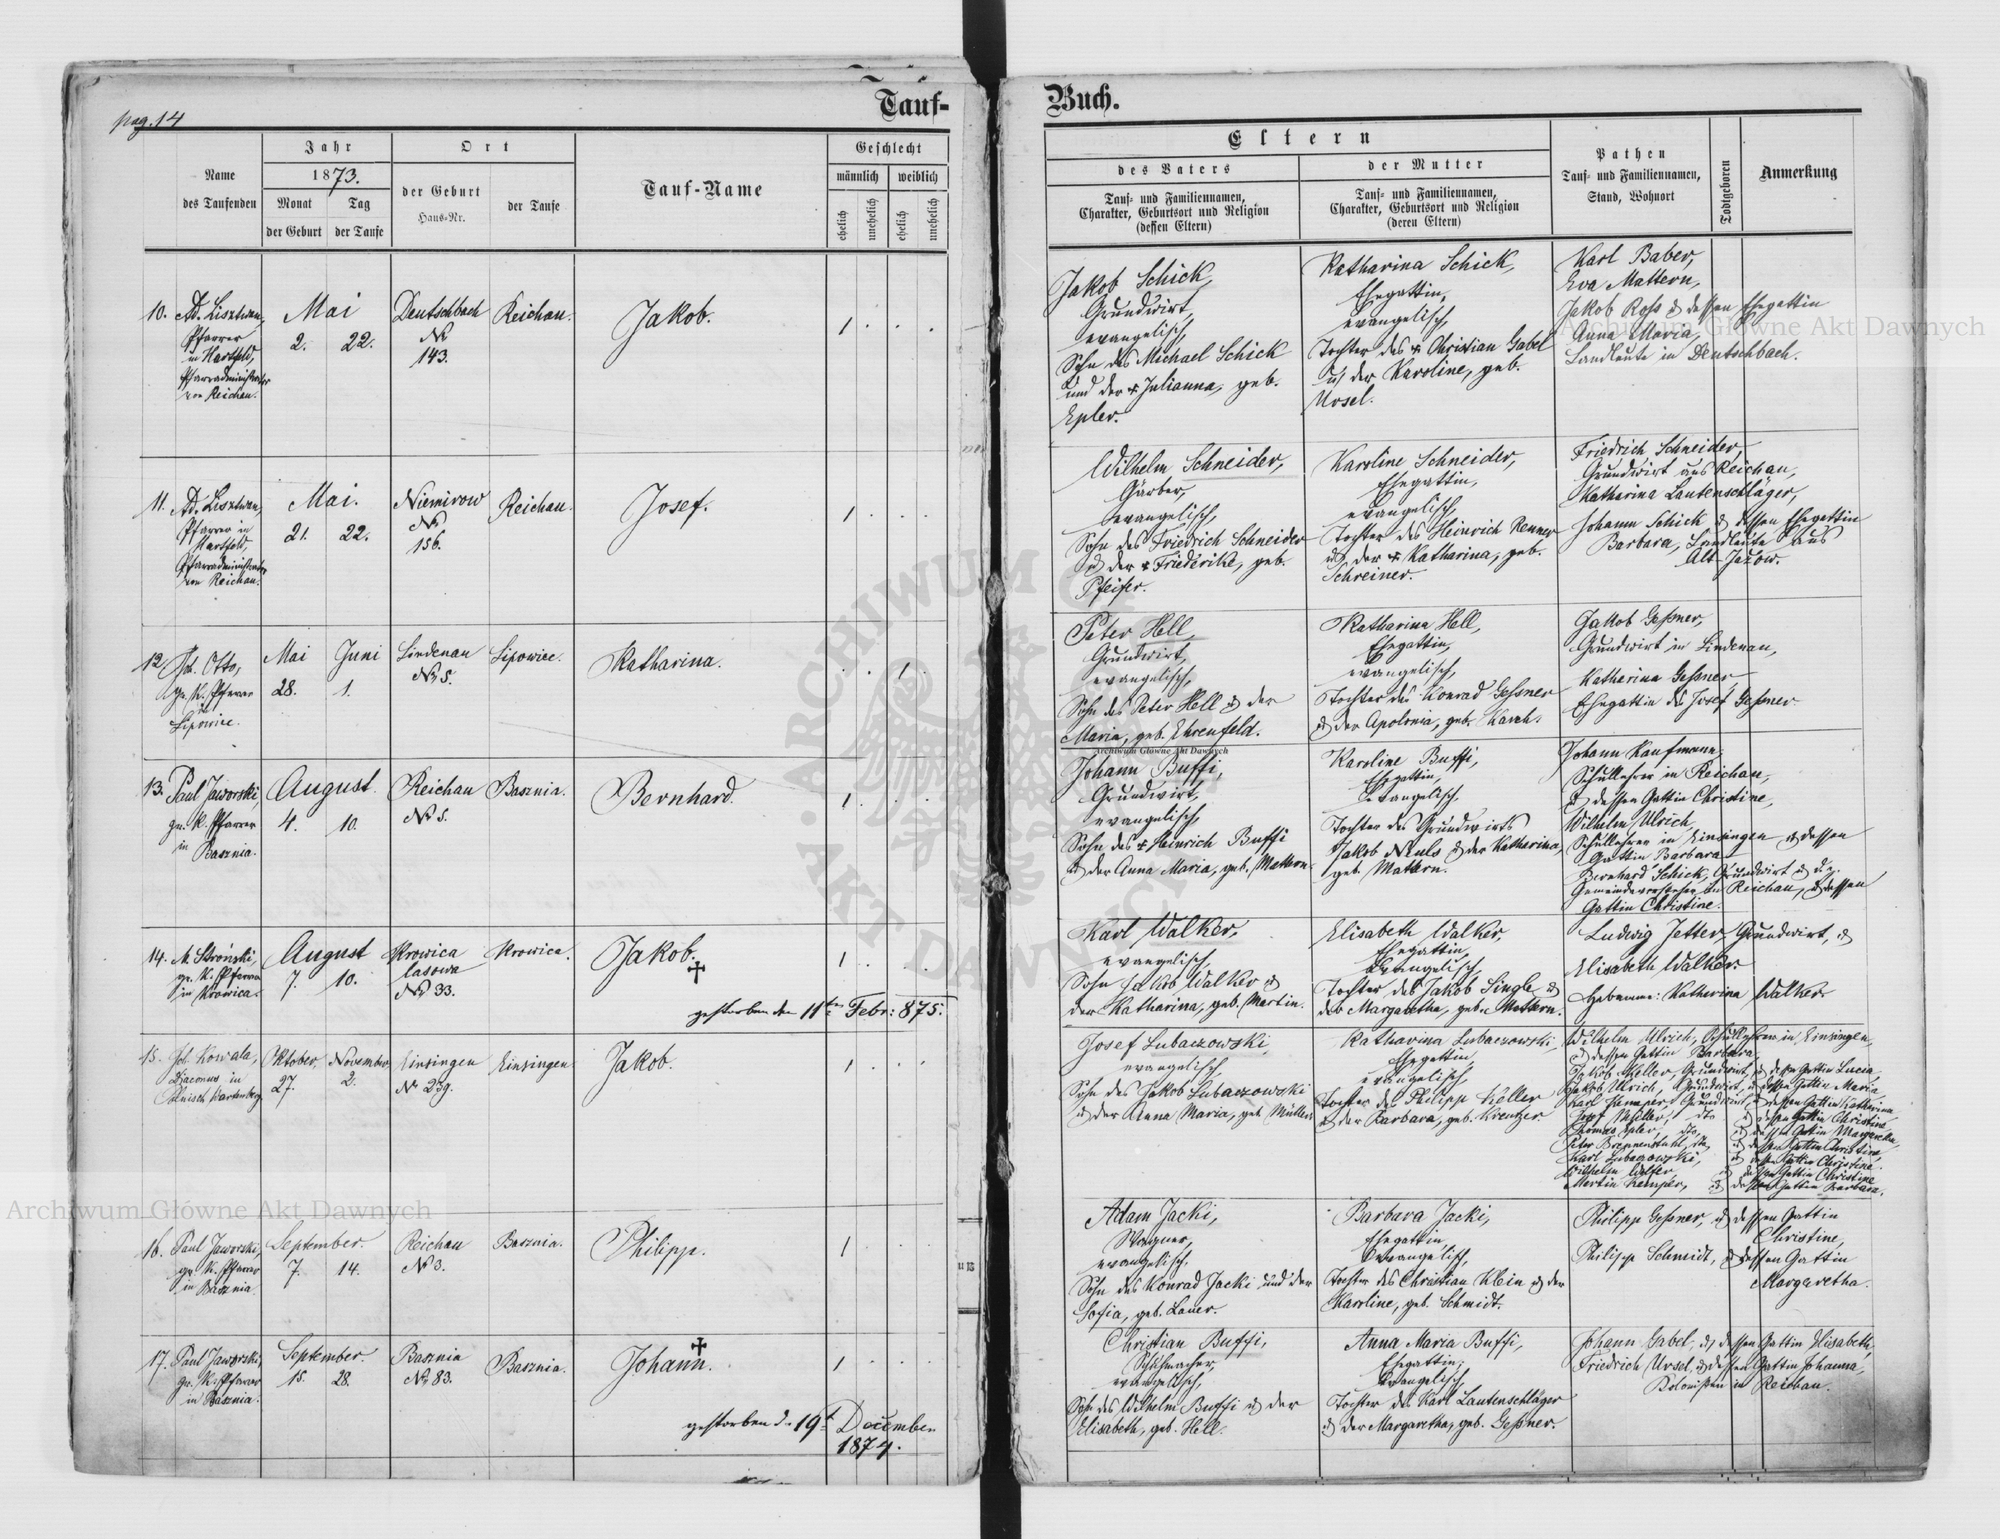 pag. 14
Tauf-
Buch.
Name
des Taufenden
Jahr
1873.
Monat
Tag
der Geburt
der Taufe
Ort
der Geburt
Haus-Nr.
der Taufe
Tauf-Name
Geschlecht
männlich
weiblich
ehelich
unehelich
ehelich
unehelich
Eltern
des Vaters
Tauf- und Familiennamen,
Charakter, Geburtsort und Religion
(dessen Eltern)
der Mutter
Tauf- und Familiennamen,
Charakter, Geburtsort und Religion
(deren Eltern)
Pathen
Tauf- und Familiennamen,
Stand, Wohnort
Todtgeboren
Anmerkung
10.
Ad. Lisztwan,
Pfarrer
in Hartfeld,
Pfarradministrator
von Reichau.
Mai
2. 22.
Deutschbach
No
143.
Reichau.
Jakob.
1
Jakob Schick,
Grundwirt,
evangelisch,
Sohn des Michael Schick
und der + Julianna, geb.
Epler.
Katharina Schick,
Ehegattin,
evangelisch,
Tochter des + Christian Gabel
u. der Karoline, geb.
Ursel.
Karl Baber,
Eva Mattern,
Jakob Ross u. dessen Ehegattin
Anna Maria,
Landleute in Deutschbach.
11.
Ad. Lisztwan,
Pfarrer in
Hartfeld,
Pfarradministrator
von Reichau.
Mai.
21. 22.
Niemirow
No
156.
Reichau.
Josef.
1
Wilhelm Schneider,
Gärber,
evangelisch,
Sohn des Friedrich Schneider
u. der + Friederike, geb.
Pfeifer.
Karoline Schneider,
Ehegattin,
evangelisch,
Tochter des Heinrich Renner
u. der + Katharina, geb.
Schreiner.
Friedrich Schneider,
Grundwirt aus Reichau,
Katharina Lautenschläger,
Johann Schick u. dessen Ehegattin
Barbara, Landleute aus
Alt-Jazow.
12.
Joh. Otto,
gr. K. Pfarrer
in
Lipowiec.
Mai Juni
28. 1.
Lindenau
No 5.
Lipowiec.
Katharina.
1
Peter Hell,
Grundwirt,
evangelisch,
Sohn des Peter Hell u. der
Maria, geb. Ehrenfeld.
Katharina Hell,
Ehegattin,
evangelisch,
Tochter des Konrad Gessner
u. der Apolonia, geb.
Jakob Gessner,
Grundwirt in Lindenau,
Katherina Gessner
Ehegattin des Josef Gessner.
13.
Paul Jaworski,
gr. K. Pfarrer
in
Basznia.
August.
4. 10.
Reichau
No 5.
Basznia.
Bernhard.
1
Johann Buffi,
Grundwirt,
evangelisch,
Sohn des + Heinrich Buffi
u. der Anna Maria, geb. Mattern.
Karoline Buffi,
Ehegattin,
evangelisch,
Tochter des Grundwirts
Jakob u. der Katharina,
geb. Mattern.
Johann Kaufmann,
Schullehrer in Reichau,
u. dessen Gattin Christine,
Wilhelm Ulrich,
Schullehrer in Einsingen u. dessen
Gattin Barbara
Bernhard Schick, Grundwirt u. d. z.
Gemeindevorsteher in Reichau, u. dessen
Gattin Christine.
14.
M. Stroński,
gr. K. Pfarrer
in Krowica.
August
7. 10.
Krowica
lasowa
No 33.
Krowica.
Jakob.
1
gestorben den 11ten Febr: 875.
Karl Walker,
evangelisch,
Sohn Jakob Walker u.
der Katharina, geb. Martin.
Elisabeth Walker,
Ehegattin,
Evangelisch,
Tochter des Jakob Single u.
der Margaretha, geb. Mattern.
Ludwig Jetter, Grundwirt, u.
Elisabeth Walker.
Hebamme: Katherina Walker
15.
Joh. Kowala,
Diaconus in
Polnisch Wartenberg
Oktober, November
27. 2.
Einsingen
No 239.
Einsingen.
Jakob.
1
Josef Lubaczowski,
evangelisch,
Sohn des Jakob Lubaczowski
u. der Anna Maria, geb. Müller.
Katharina Lubaczowski,
Ehegattin,
evangelisch,
Tochter des Philipp Keller
u. der Barbara, geb. Kreutzer.
Wilhelm Ulrich, Schullehrer in Einsingen,
u. dessen Gattin Barbara,
Jakob Keller, Grundwirt, u. dessen Gattin Lucia,
Jakob Ulrich, Grundwirt, u. dessen Gattin Maria,
Karl Kemper, Grundwirt, u. dessen Gattin Katharina,
Josef Müller, dto u. dessen Gattin Christine,
Thomas Epler, dto, u. dessen Gattin Margaretha,
Peter Brennenstuhl, dto u. dessen Gattin Christine,
Karl Lubaczowski, u. dessen Gattin Christine,
Wilhelm u. dessen Gattin Christine,
Martin Kemper, u. dessen Gattin Barbara.
16.
Paul Jaworski,
gr. K. Pfarrer
in Basznia.
September.
7. 14.
Reichau
No 3.
Basznia.
Philipp.
1
Adam Jacki,
Wagner,
evangelisch,
Sohn des Konrad Jacki und der
Sofia, geb. Lauer.
Barbara Jacki,
Ehegattin,
evangelisch,
Tochter des Christian Klein u. der
Karoline, geb. Schmidt.
Philipp Gessner, u. dessen Gattin
Christine,
Philipp Schmidt, u. dessen Gattin
Margaretha.
17.
Paul Jaworski,
gr. K. Pfarrer
in Basznia.
September.
15. 28.
Basznia
No 83.
Basznia.
Johann.
1
gestorben d. 19t December
1874.
Christian Buffi,
Schumacher,
evangelisch,
Sohn des Wilhelm Buffi u. der
Elisabeth, geb. Hell.
Anna Maria Buffi,
Ehegattin,
Evangelisch,
Tochter des Karl Lautenschläger
u. der Margaretha, geb. Gessner.
Johann Gabel, u. dessen Gattin Elisabeth,
Friedrich Ursel, u. dessen Gattin Johanna,
Kolonisten in Reichau.
Archiwum Główne Akt Dawnych
Archiwum Główne Akt Dawnych
Archiwum Główne Akt Dawnych